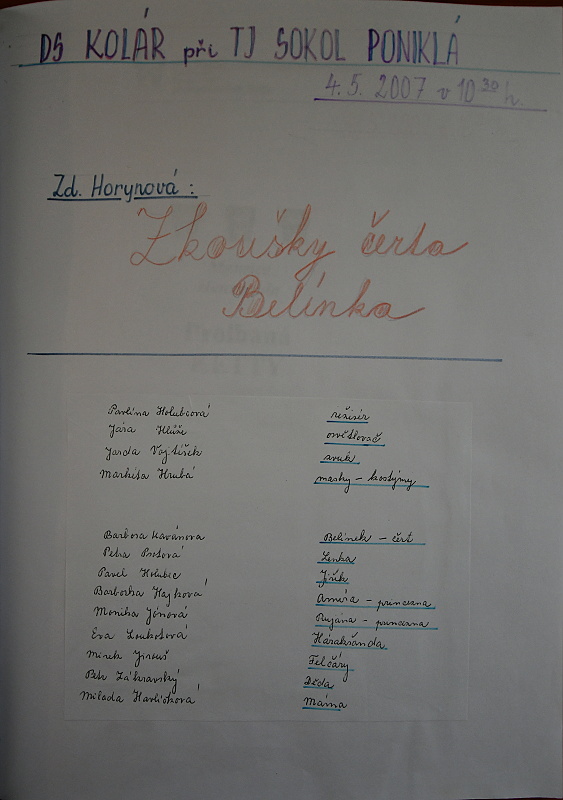 DS KOLÁR při TJ SOKOL PONIKLÁ
4. 5. 2007 v 10 30 h.
Zd. Horynová :
Zkoušky čerta
Belínka
Pavlína Holubcová režisér
Jára Hlůže osvětlovač
Jarda Vojtíšek zvuk
Markéta Hrubá masky - kostýmy
Barbora Kavánova Belínek - čert
Petra Lenka
Pavel Holubec Jiřík
Barborka Hajková - princezna
Monika Jónová - princezna
Eva Loukotová Háraksanda
Mirek Jirouš Felčáry
Petr Zákravský Děda
Milada Havlíčková Máma